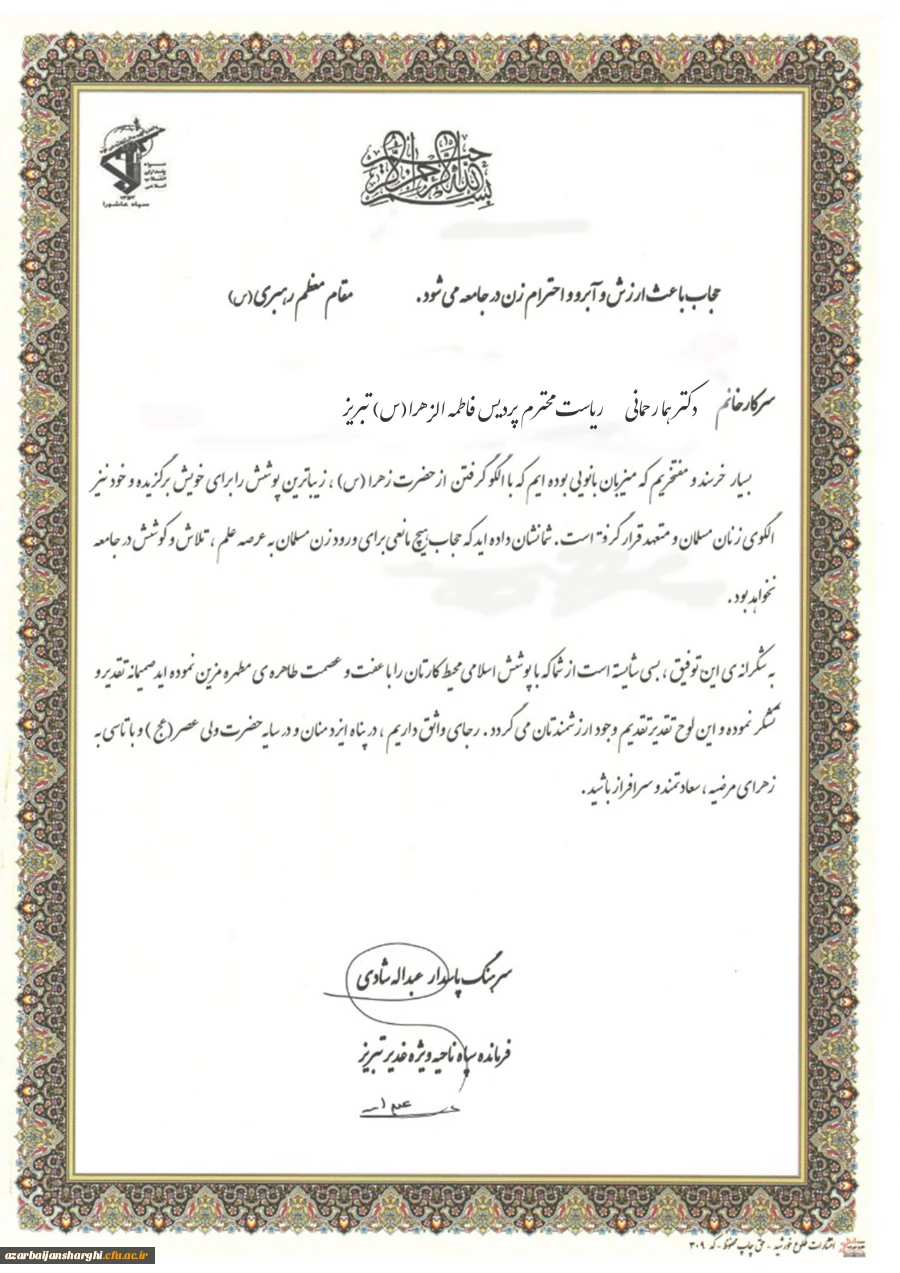 بسم الله الرحمن الرحیم
سپاه
پاسداران
انقلاب
اسلامی
سپاه عاشورا
حجاب باعث ارزش و آبرو و احترام زن در جامعه می شود . مقام معظم رهبری (س)
سرکار خانم دکتر هما رحمانی ریاست محترم پردیس فاطمه الزهرا (س) تبریز
بسیار خرسند و مفتخریم که میزبان بانویی بوده ایم که با الگو گرفتن از حضرت زهرا (س) ، زیباترین پوشش را برای خویش برگزیده و خود نیز
الگوی زنان مسلمان و متعهد قرار گرفته است . شما نشان داده اید که حجاب هیچ مانعی برای ورود زن مسلمان به عرصه علم ، تلاش و کوشش در جامعه
نخواهد بود .
به شکرانه ی این توفیق ، بسی شایسته است از شما که با پوشش اسلامی محیط کارتان را با عفت و عصمت طاهره ی مطهره مزین نموده اید صمیمانه تقدیر و
تشکر نموده و این لوح تقدیر تقدیم وجود ارزشمندتان می گردد . رجای واثق داریم ، در پناه ایزد منان و در سایه حضرت ولی عصر (عج) و با تاسی به
زهرای مرضیه ، سعادتمند و سرافراز باشید .
سرهنگ پاسدار عبداله شادی
فرمانده سپاه ناحیه ویژه غدیر تبریز
انتشارات طلوع خورشید - حق چاپ محفوظ - کد ۳۰۹
azarbaijansharghi.cfu.ac.ir